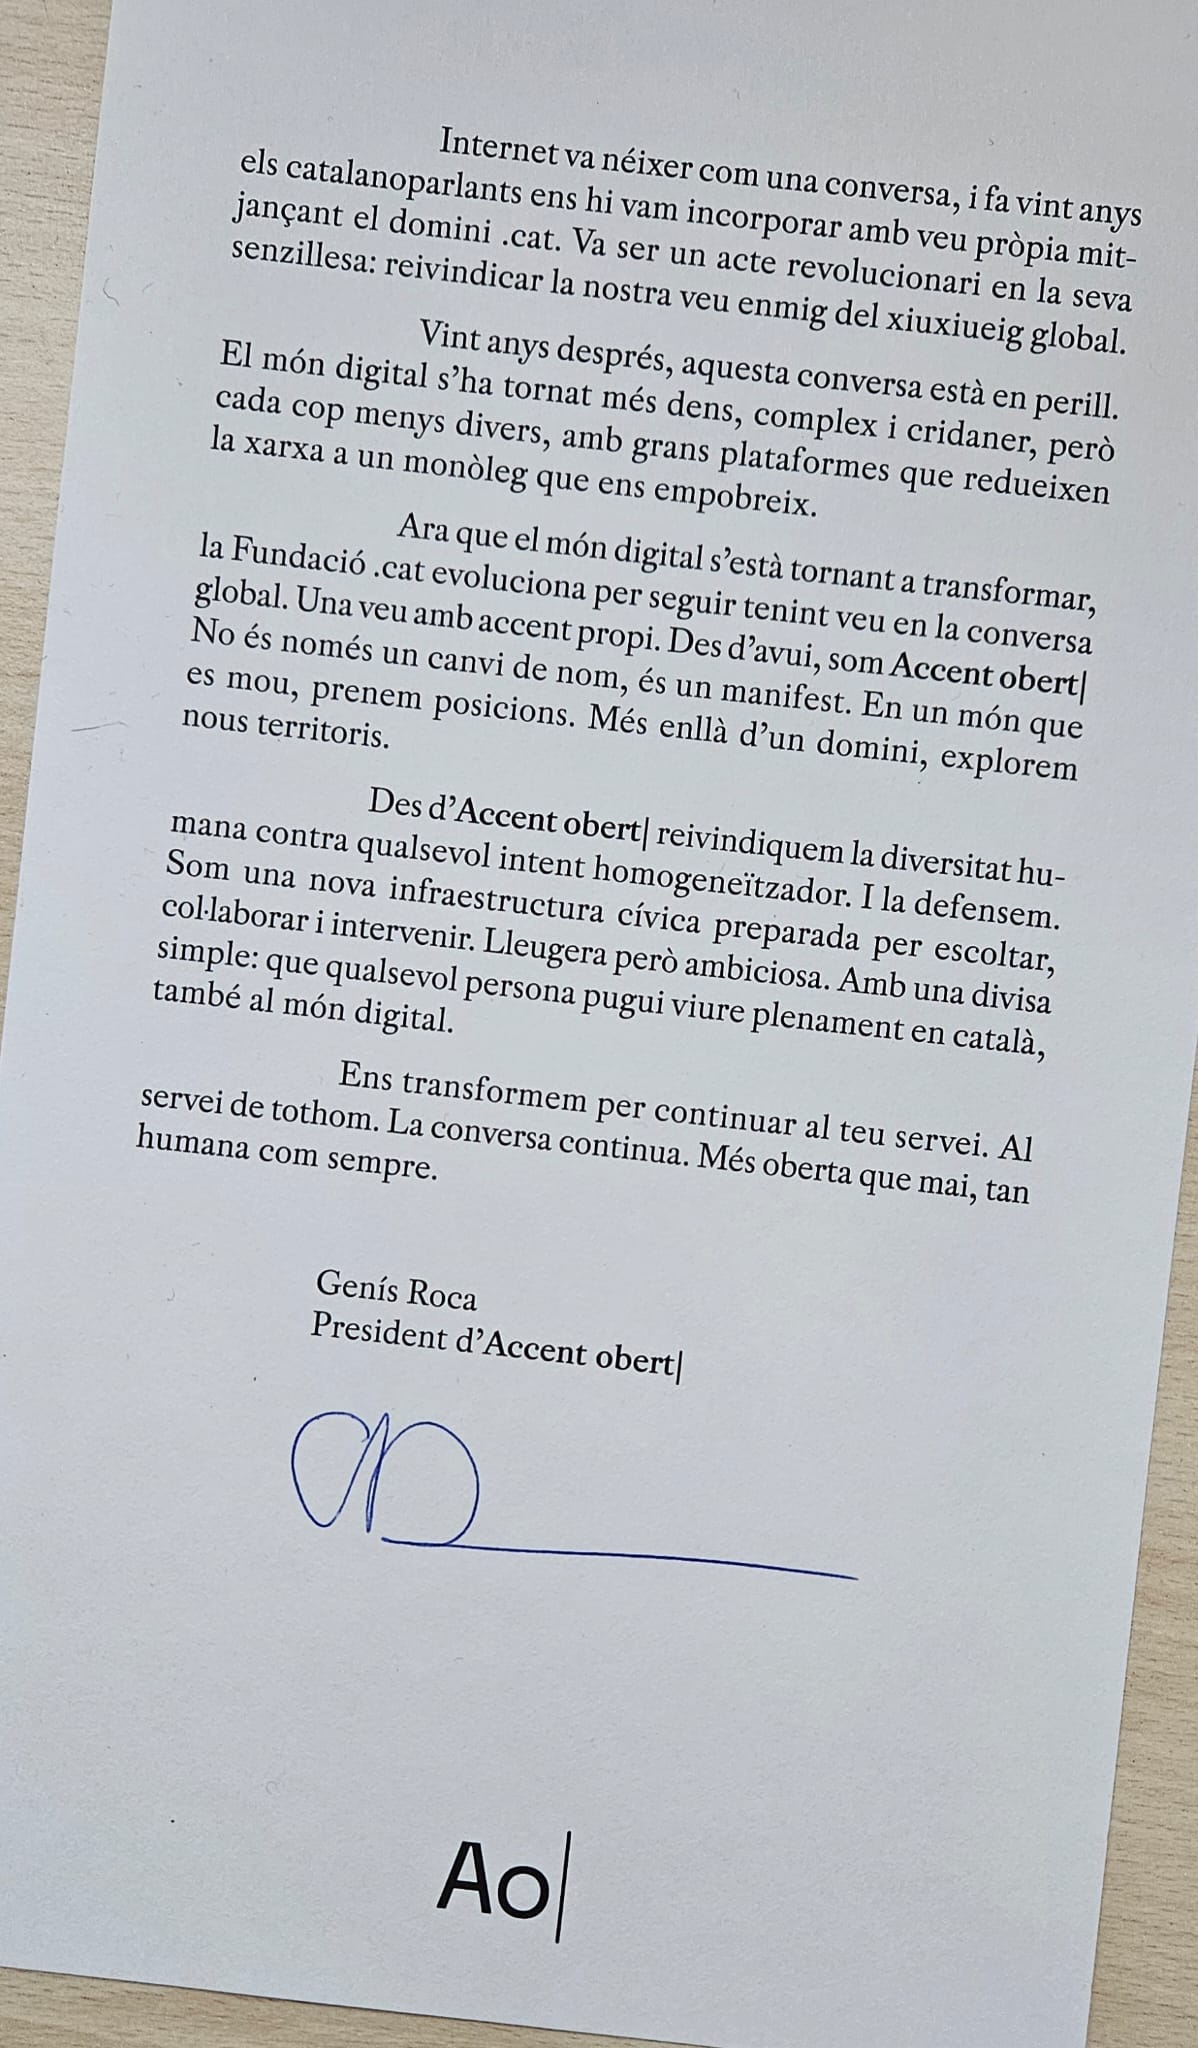 Internet va néixer com una conversa, i fa vint anys
els catalanoparlants ens hi vam incorporar amb veu pròpia mit-
jançant el domini .cat. Va ser un acte revolucionari en la seva
senzillesa: reivindicar la nostra veu enmig del xiuxiueig global.
Vint anys després, aquesta conversa està en perill.
El món digital s’ha tornat més dens, complex i cridaner, però
cada cop menys divers, amb grans plataformes que redueixen
la xarxa a un monòleg que ens empobreix.
Ara que el món digital s’està tornant a transformar,
la Fundació .cat evoluciona per seguir tenint veu en la conversa
global. Una veu amb accent propi. Des d’avui, som Accent obert|
No és només un canvi de nom, és un manifest. En un món que
es mou, prenem posicions. Més enllà d’un domini, explorem
nous territoris.
Des d’Accent obert| reivindiquem la diversitat hu-
mana contra qualsevol intent homogeneïtzador. I la defensem.
Som una nova infraestructura cívica preparada per escoltar,
col·laborar i intervenir. Lleugera però ambiciosa. Amb una divisa
simple: que qualsevol persona pugui viure plenament en català,
també al món digital.
Ens transformem per continuar al teu servei. Al
servei de tothom. La conversa continua. Més oberta que mai, tan
humana com sempre.
Genís Roca
President d’Accent obert|
Ao|